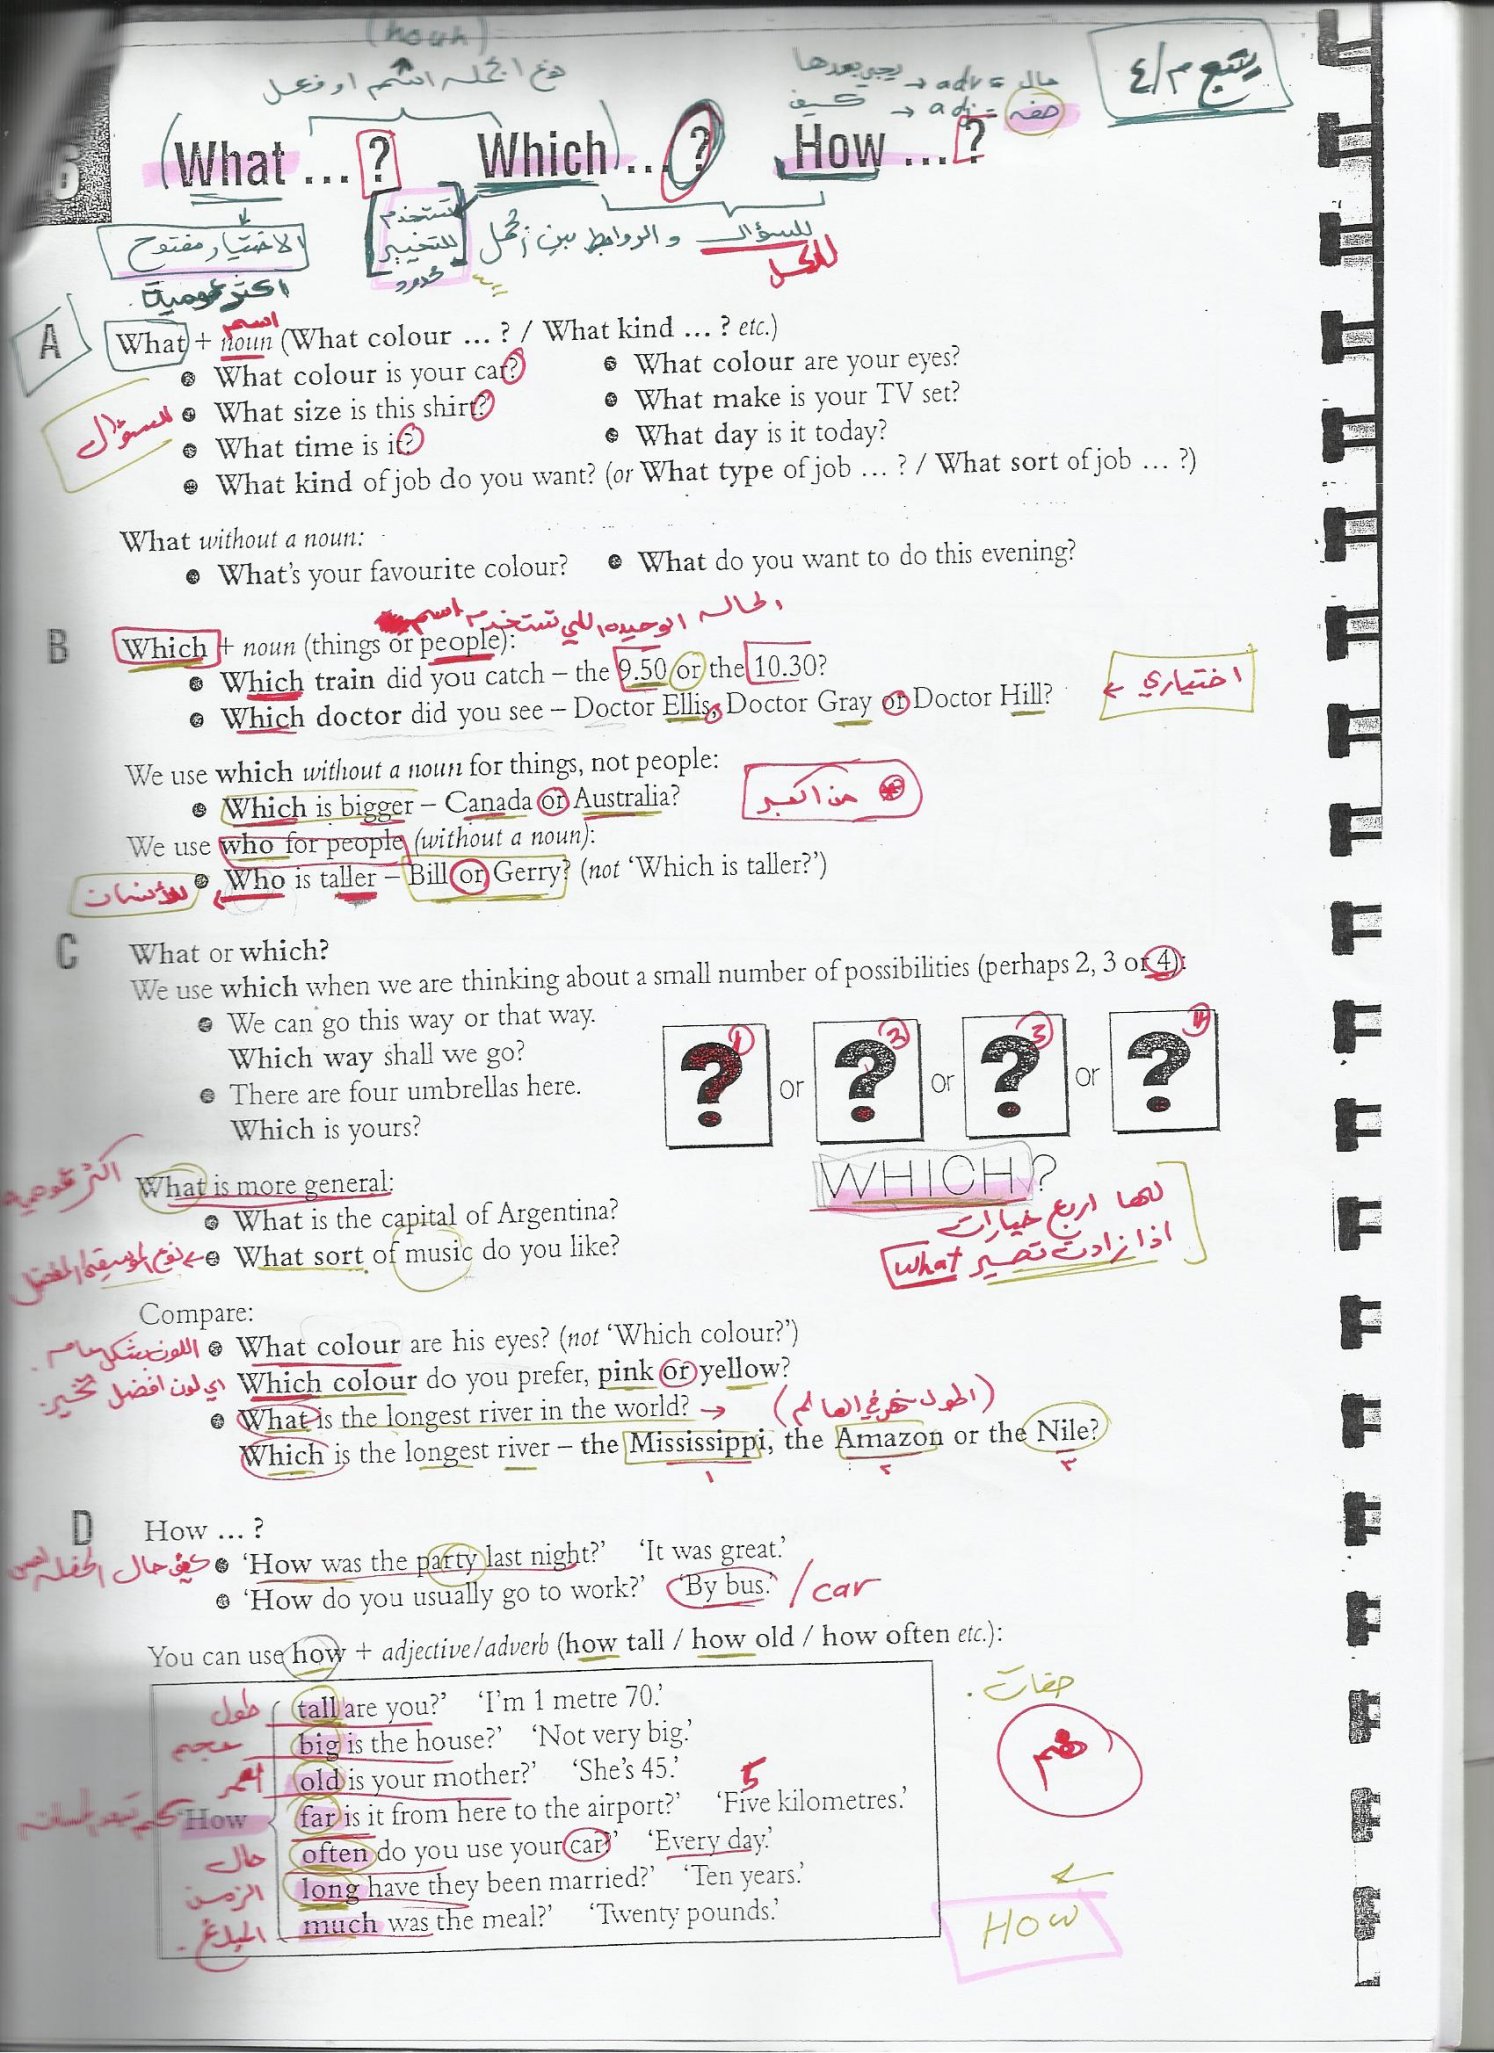 (noun)
يتبع م/٤
مع الجملة اسم او فعل
يجي بعدها → adv = حال
كيف → adj = صفه
What ... ? Which ... ? How ... ?
الاختيار مفتوح
اكثر عمومية
تستخدم
للتخيير
محدود
للسؤال والروابط بين الجمل
للكل
A
اسم
What + noun (What colour ... ? / What kind ... ? etc.)
• What colour is your car? • What colour are your eyes?
للسؤال • What size is this shirt? • What make is your TV set?
• What time is it? • What day is it today?
• What kind of job do you want? (or What type of job ... ? / What sort of job ... ?)
What without a noun:
• What's your favourite colour? • What do you want to do this evening?
الحاله الوحيده اللي تستخدم اسم
B Which + noun (things or people):
• Which train did you catch – the 9.50 or the 10.30?
اختياري
• Which doctor did you see – Doctor Ellis, Doctor Gray or Doctor Hill?
We use which without a noun for things, not people:
• Which is bigger – Canada or Australia?
من اكبر
We use who for people (without a noun):
للأنسان • Who is taller – Bill or Gerry? (not 'Which is taller?')
C What or which?
We use which when we are thinking about a small number of possibilities (perhaps 2, 3 or 4):
• We can go this way or that way.
Which way shall we go?
• There are four umbrellas here.
Which is yours?
? or ? or ? or ?
WHICH?
لها اربع خيارات
اذا زادت تصير What
اكثر عمومية
What is more general:
• What is the capital of Argentina?
نوع الموسيقى المفضل • What sort of music do you like?
Compare:
اللون بشكل عام • What colour are his eyes? (not 'Which colour?')
اي لون افضل تخيير Which colour do you prefer, pink or yellow?
• What is the longest river in the world? → (اطول نهر في العالم)
Which is the longest river – the Mississippi, the Amazon or the Nile?
١ ٢ ٣
D How ... ?
كيف حال الحفله • 'How was the party last night?' 'It was great.'
• 'How do you usually go to work?' 'By bus.' / car
You can use how + adjective/adverb (how tall / how old / how often etc.):
صفات
طول tall are you?' 'I'm 1 metre 70.'
حجم big is the house?' 'Not very big.'
العمر old is your mother?' 'She's 45.'
5
كم تبعد المسافه 'How far is it from here to the airport?' 'Five kilometres.'
حال often do you use your car?' 'Every day.'
الزمن long have they been married?' 'Ten years.'
المبلغ much was the meal?' 'Twenty pounds.'
HOW